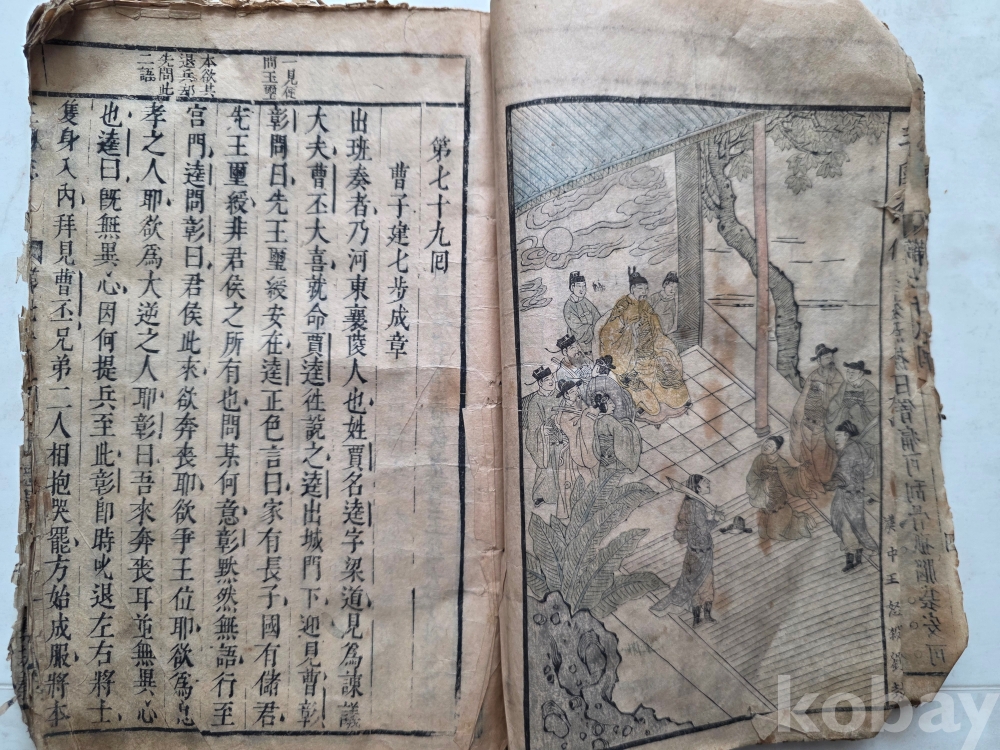 第七十九回
曹子建七步成章
出班奏者乃河東襄陵人也姓賈名逵字梁道見為諫議
大夫曹丕大喜就命賈逵徃說之逵出城門下迎見曹彰
彰問曰先王璽綬安在逵正色言曰家有長子國有儲君
先王璽綬非君侯之所有也問某何意彰默然無語行至
宮門逵問彰曰君侯此來欲奔喪耶欲爭王位耶欲為忠
孝之人耶欲為大逆之人耶彰曰吾來奔喪耳並無異心
也逵曰既無異心因何提兵至此彰即時叱退左右將士
隻身入內拜見曹丕兄弟二人相抱哭罷方始成服將本
一見便
問玉璽
本欲其
退兵却
先問此
二語
漢中王
kobay